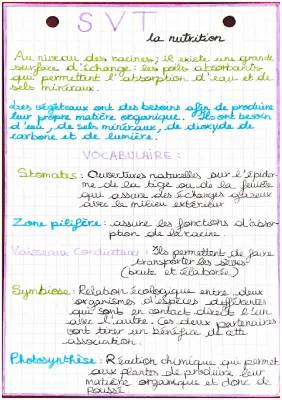 SVT
la nutrition
Au niveau des racines, il existe une grande
surface d'échange: les poils absorbants
qui permettent l'absorption d'eau et de
sels minéraux.
Les végétaux ont des besoins afin de produire
leur propre matière organique. Ils ont besoin
d'eau, de sels minéraux, de dioxyde de
carbone et de lumière.
VOCABULAIRE:
Stomates: Ouvertures naturelles sur l'épider-
me de la tige ou de la feuille
qui assure des échanges gazeux
avec le milieu extérieur
Zone pilifère: assure les fonctions d'absor-
ption de la racine
Vaisseau Conducteur: Ils permettent de faire
transporter les sèves
(brute et élaborée)
Symbiose: Relation écologique entre deux
organismes d'espèces différentes
qui sont en contact direct l'un
avec l'autre. Ces deux partenaires
vont tirer un bénéfice de cette
association.
Photosynthèse: Réaction chimique qui permet
aux plantes de produire leur
matière organique et donc de
pousse